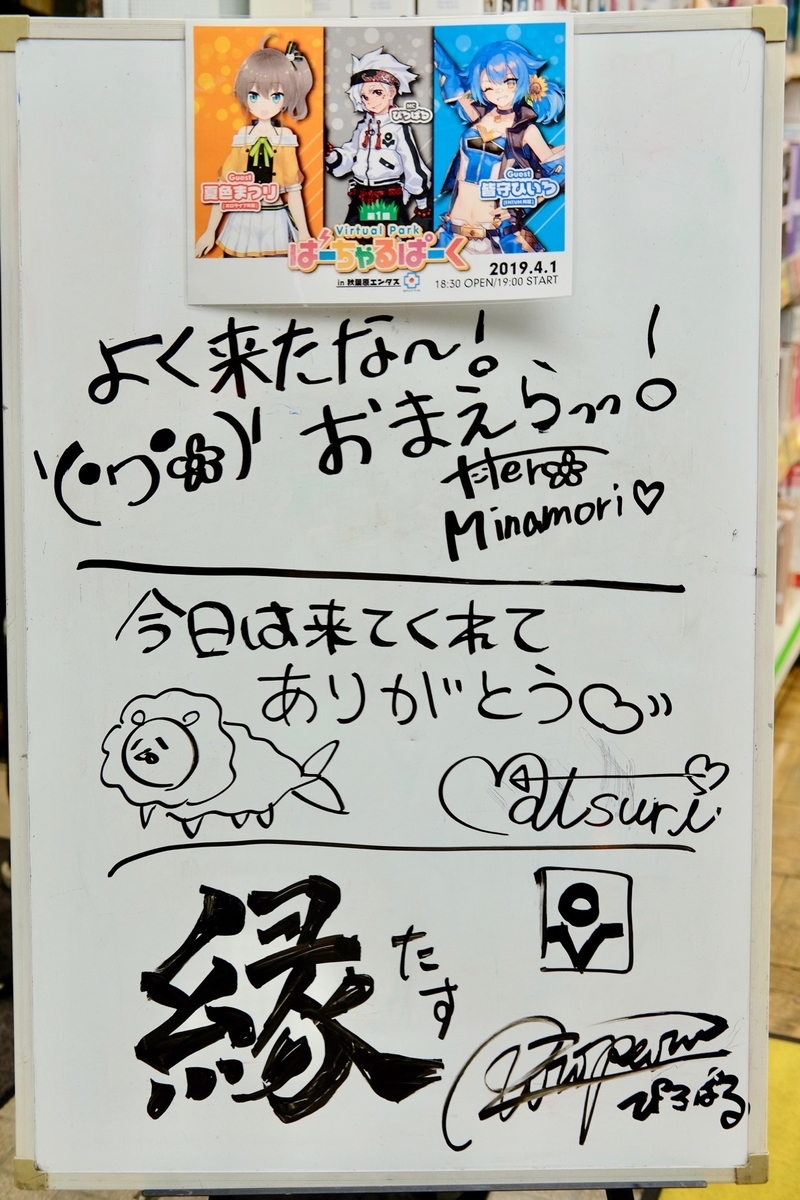 Guest
夏色まつり
[ホロライブ所属]
MC
ぴろぱる
Guest
皆守ひいろ
[ENTUM所属]
第1回
Virtual Park
ばーちゃるぱーく
in 秋葉原エンタス
2019.4.1
18:30 OPEN/19:00 START
よく来たな～!
おまえらっっ!
Hiero
Minamori♡
今日は来てくれて
ありがとう♡
Matsuri
縁
たす
ぴろぱる